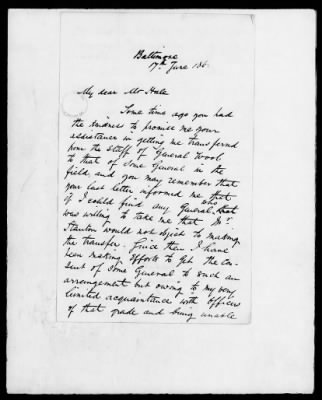 Baltimore
17th June 186
My dear Mr Hale
Some time ago you had
the kindness to promise me your
assistance in getting me transferred
from the Staff of General Wool
to that of some General in the
field, and you may remember that
your last letter informed me that
if I could find any General who
was willing to take me that Mr
Stanton would not object to making
the transfer. Since then I have
been making efforts to get the con-
sent of some General to such an
arrangement but owing to my very
limited acquaintance with officers
of that grade and being unable